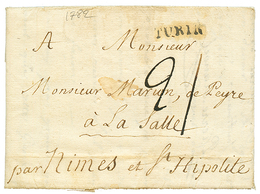 1788
TURIN
A Monsieur
21
Monsieur Marion, de Peyre
à La Salle
par Nimes et St Hipolite